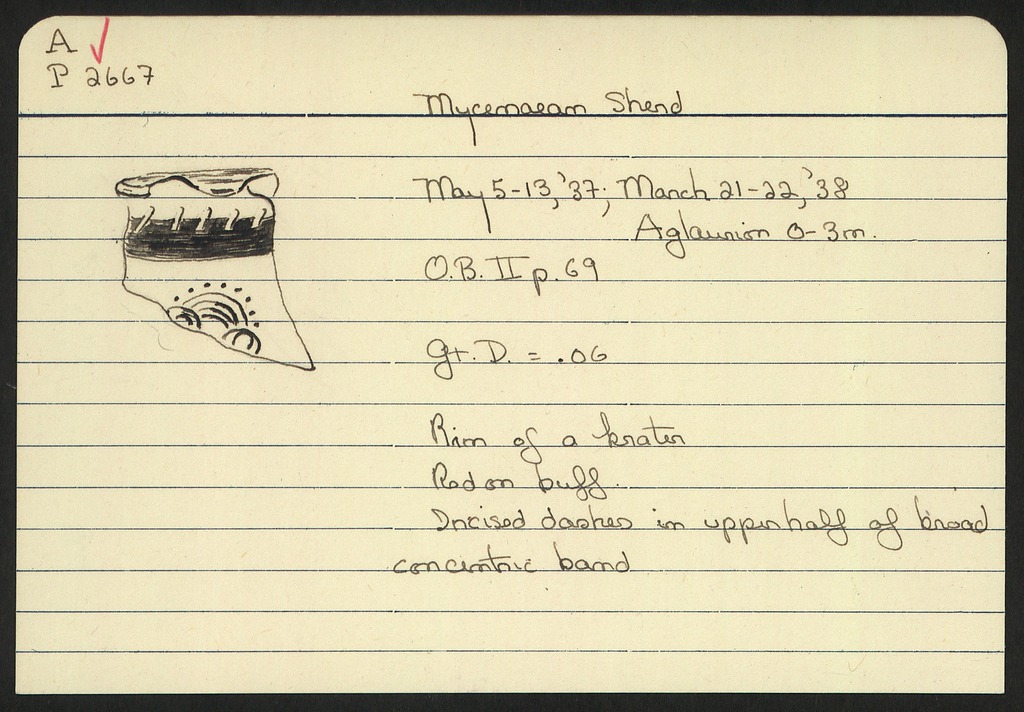 A ✓
P 2667
Mycenaean Sherd
May 5-13, '37; March 21-22, '38
Aglaurion 0-3m.
O.B. II p. 69
Gt. D. = .06
Rim of a krater
Red on buff.
Incised dashes in upper half of broad
concentric band